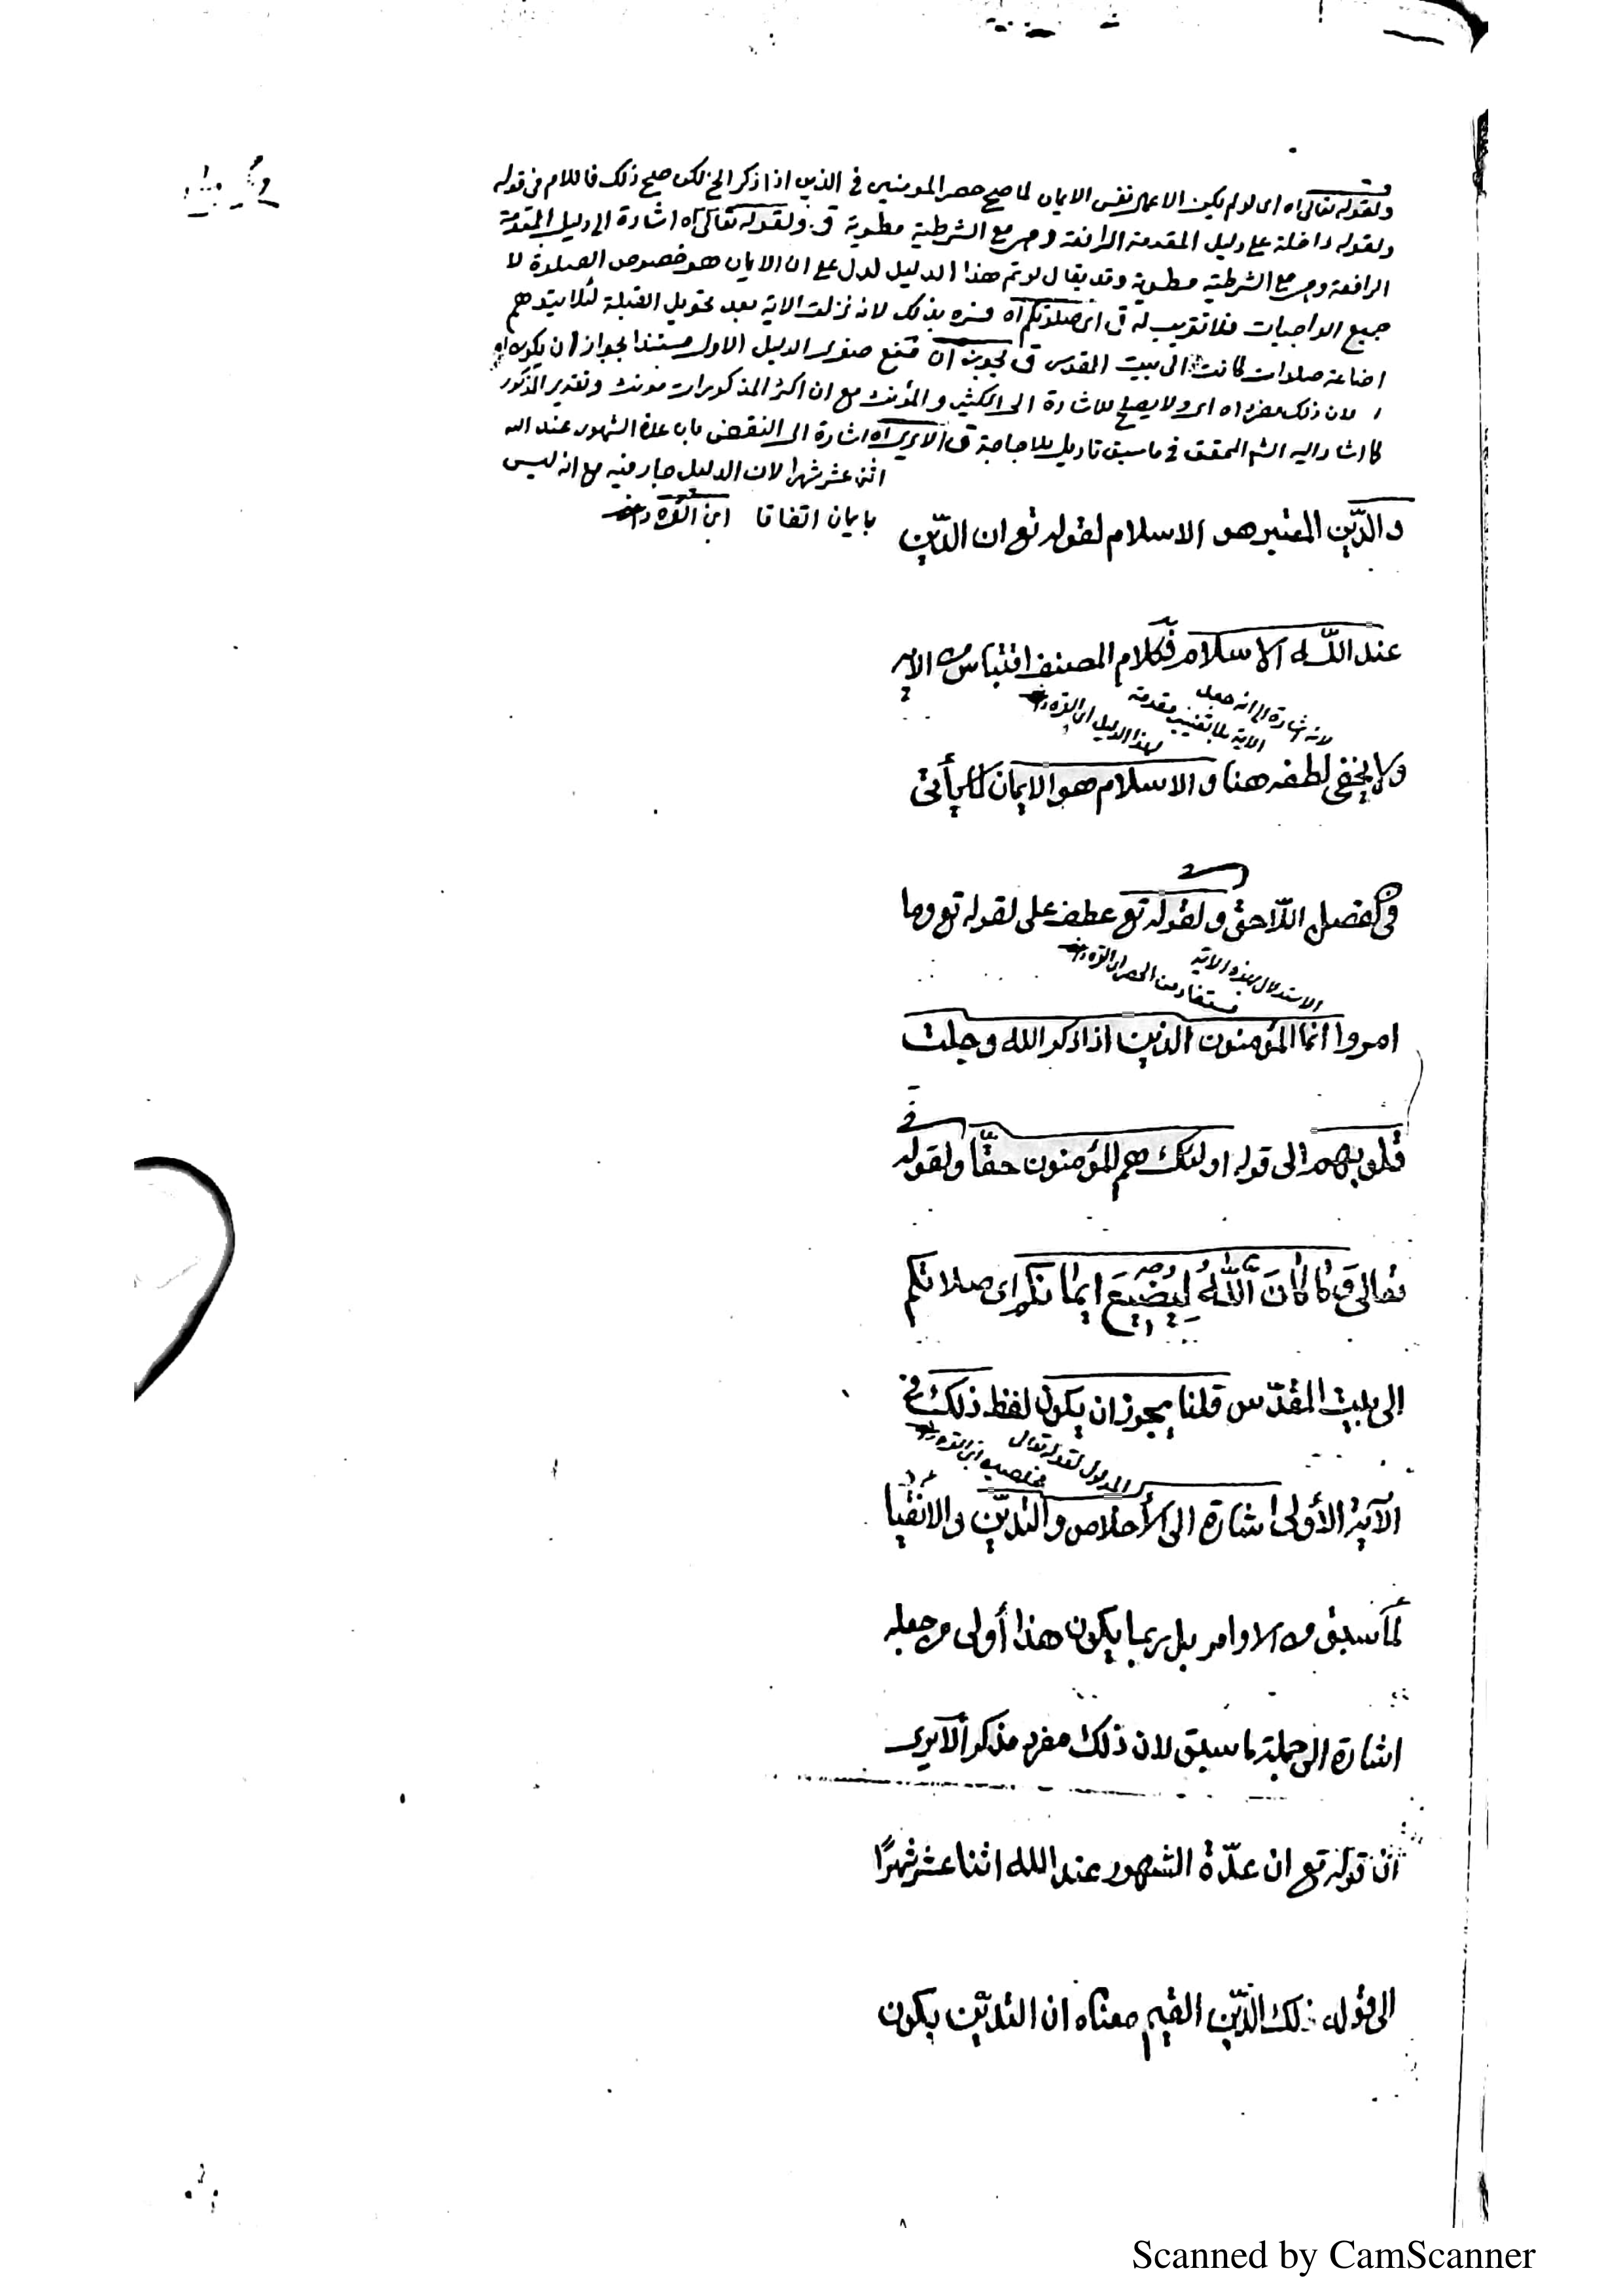 ولقوله تعالى اه اى لو لم يكن الاعمال نفس الايمان لما صح حصر المومنين فى الذين اذا ذكر الخ لكن صح ذلك فاللام فى قوله
ولقوله داخلة على دليل المقدمة الرافعة وهى مع الشرطية مطوية ق ولقوله تعالى اه اشارة الى دليل المقدمة
الرافعة وهى مع الشرطية مطوية وقد يقال لو تم هذا الدليل لدل على ان الايمان هو خصوص الصلوة لا
جميع الواجبات فلا تقريب له ق اى صلوتكم اه فسره بذلك لانه نزلت الاية بعد تحويل القبلة لئلا يتوهم
اضاعة صلوات كانت الى بيت المقدس ق يجوز ان اه منع صغرى الدليل الاول مستندا بجواز ان يكون اه
لان ذلك مفرد اه اى ولا يصلح للاشارة الى الكثير والمؤنث مع ان اكثر المذكورات مونث وتقدير المذكور
كما اشار اليه الشم المحقق فى ما سبق تاويل بلا حاجة ق الا يرى اه اشارة الى النقض بان عدة الشهور عند الله
اثنى عشر شهرا لان الدليل جار فيه مع انه ليس
بايمان اتفاقا ابن القره
والدّين المعتبر هو الاسلام لقوله تع ان الدّين
عند اللّه الاسلام فكلام المصنف اقتباس من الاية
لانه اشارة الى انه جعل
الاية بلا تغيير مقدمة
لهذا الدليل ابن القره
ولا يخفى لطفه هنا والاسلام هو الايمان كما يأتى
فى الفصل اللاحق ولقوله تع عطف على لقوله تع وما
الاستدلال بهذه الاية
مستفاد من الحصر ابن القره
امروا انما المؤمنون الذين اذا ذكر الله وجلت
قلوبهم الى قوله اولئك هم المؤمنون حقّا ولقوله
تعالى وَمَا كَانَ اللّٰهُ لِيُضِيعَ ايمانكم اى صلاتكم
الى بيت المقدّس قلنا يجوز ان يكون لفظ ذلك فى
المدلول لقوله تعالى
مخلصين ابن القره
الآية الأولى اشارة الى الأخلاص والتديّن والانقيا
لما سبق من الاوامر بل ربما يكون هذا أولى من جعله
اشارة الى جملة ما سبق لان ذلك مفرد مذكر ألا يرى
ان قوله تع ان عدّة الشهور عند الله اثنا عشر شهرًا
الى قوله ذلك الدّين القيم معناه ان التديّن بكون
Scanned by CamScanner